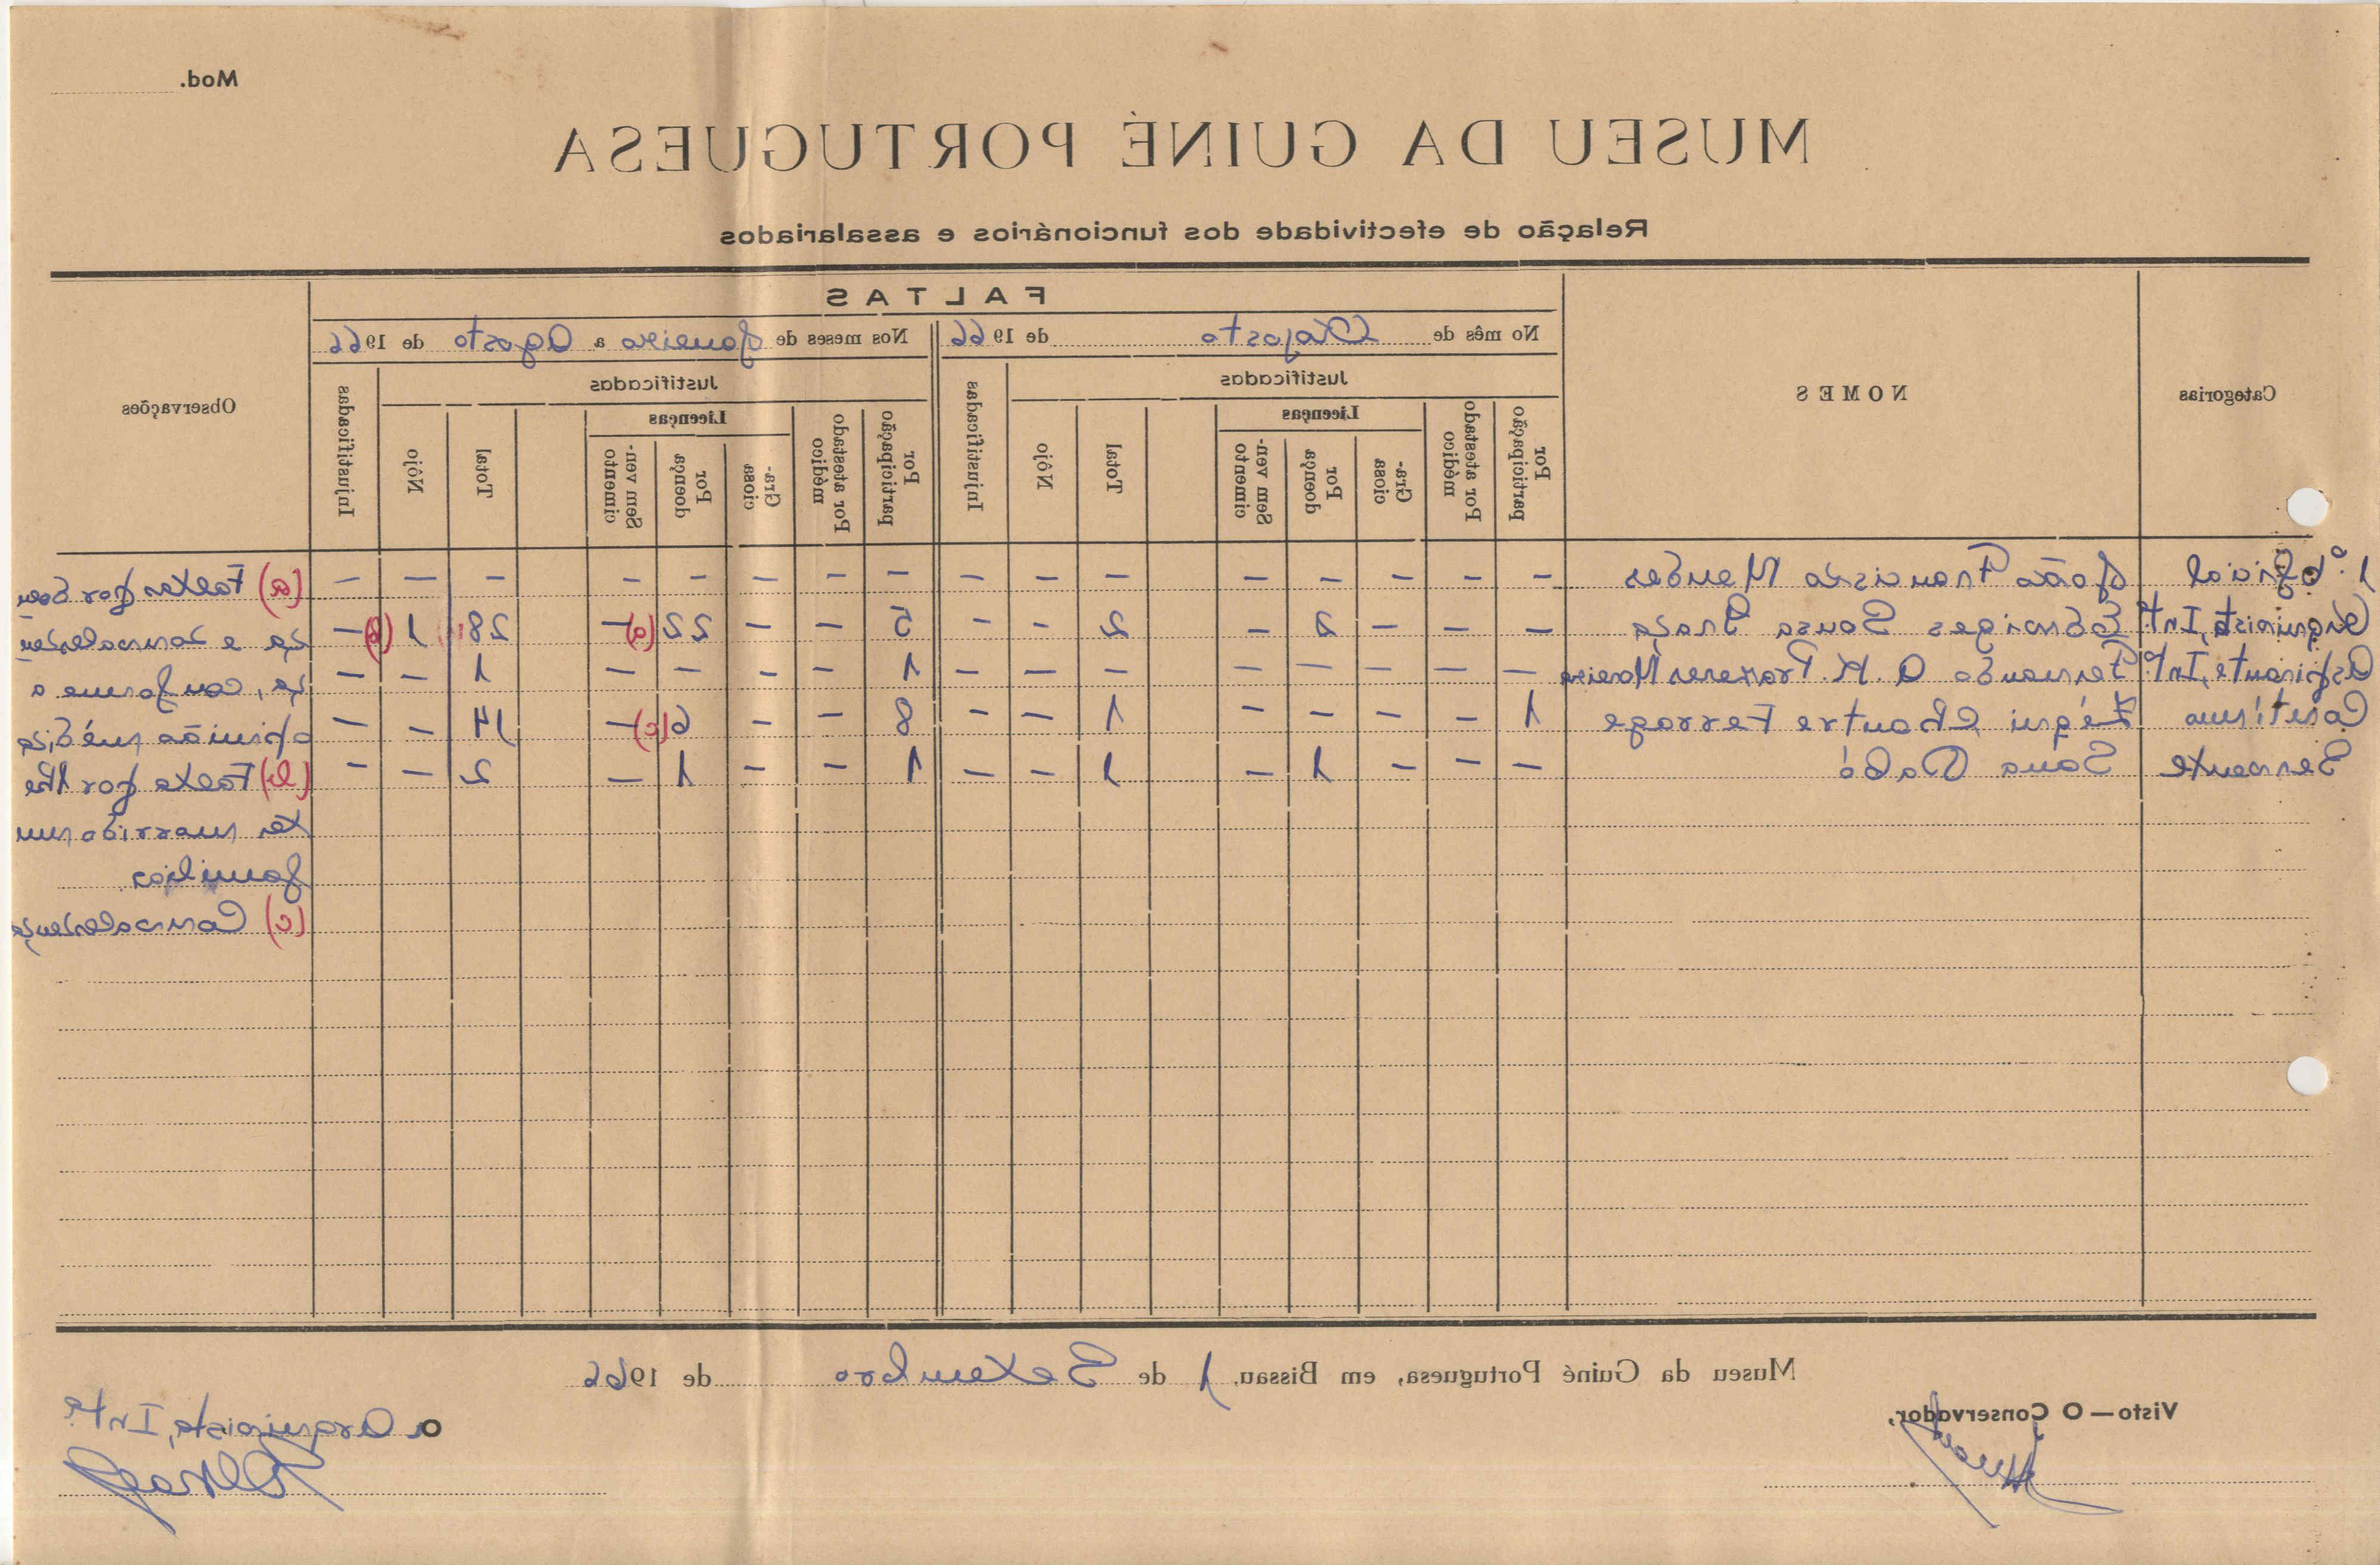 Mod.
MUSEU DA GUINÉ PORTUGUESA
Relação de efectividade dos funcionários e assalariados
Categorias
NOMES
FALTAS
No mês de Agosto de 1966
Nos meses de Janeiro a Agosto de 1966
Observações
Justificadas
Justificadas
Por participação
Por atestado médico
Licenças
Gra-ciosa
Por doença
Sem ven-cimento
Total
Nôjo
Injustificadas
Por participação
Por atestado médico
Licenças
Gra-ciosa
Por doença
Sem ven-cimento
Total
Nôjo
Injustificadas
1.º Oficial João Francisco Mendes — — — — — — — — — — — — — — — —
Arquivista, Intº. Edwiges Sousa Graça — — — 2 — 2 — — 5 — — 22 (a) — 28 1 (b) —
Aspirante, Intº. Fernando A. K. Moreira — — — — — — — — 1 — — — — 1 — —
Contínuo 1 — — — — 1 — — 8 — — 6 (c) — 14 — —
Servente Sana Dabó — — — 1 — 1 — — 1 — — 1 — 2 — —
(a) Faltas por doen
ça e convalescen
ça, conforme o
opinião médica
(b) Falta por lhe
ter morrido um
familiar
(c) Convalescença
Museu da Guiné Portuguesa, em Bissau, 1 de Setembro de 1966
Visto—O Conservador,
O Arquivista, Intº.